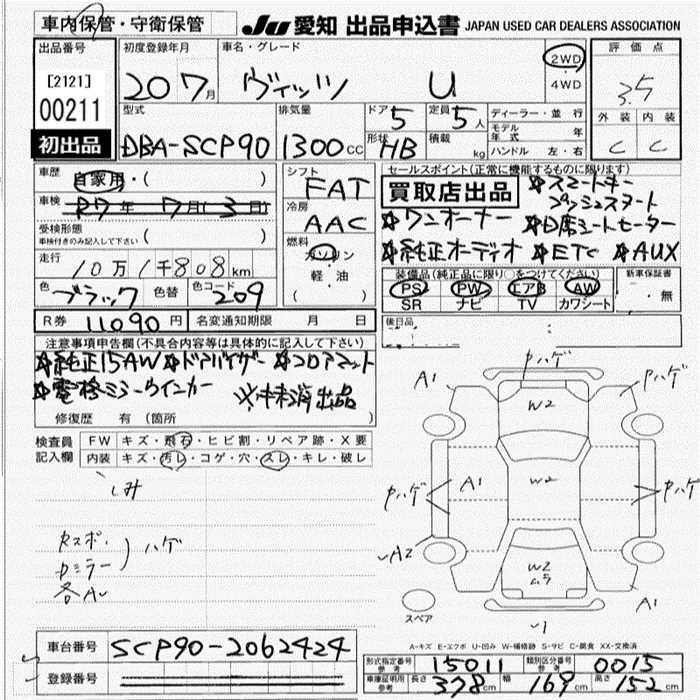 車内保管・守衛保管
JU 愛知 出品申込書 JAPAN USED CAR DEALERS ASSOCIATION
出品番号
[2121]
00211
初出品
初度登録年月
20 7月
車名・グレード
ヴィッツ U
2WD
・
4WD
評価点
3.5
外装 内装
C C
型式
DBA-SCP90
排気量
1300cc
ドア 5
形状 HB
定員 5人
積載 kg
ディーラー・並行
モデル年式 年
ハンドル 左・右
車歴
自家用・( )
車検
R7年 7月(3日)
受検形態
車検付きのみ記入して下さい ( )
走行
10万1千808km
色 ブラック 色替 色コード 209
シフト
FAT
冷房
AAC
燃料
ガソリン
軽・油
( )
セールスポイント(正常に機能するものに限ります)
買取店出品
☆スマートキー
プッシュスタート
☆ワンオーナー ☆D席シートヒーター
☆純正オーディオ ☆ETC ☆AUX
装備品(純正品に限り○をつけてください)
PS PW エアB AW
SR ナビ TV カワシート
新車保証書
・無
後日品
R券 11090円 名変通知期限 月 日
注意事項申告欄(不具合内容等は具体的に記入して下さい)
☆純正15AW ☆ドアバイザー ☆フロアマット
☆電格ミラーウインカー ※抹消出品
修復歴 有(箇所 )
検査員 FW キズ・飛石・ヒビ割・リペア跡・X要
記入欄 内装 キズ・汚レ・コゲ・穴・スレ・キレ・破レ
シミ
Rスポ.
Dミラー
各AW
ハゲ
Pハゲ
A1
W2
Pハゲ
Pハゲ
A1
W2
Pハゲ
A2
W2
ムラ
A1
スペア
A-キズ E-エクボ U-凹み W-補修跡 S-サビ C-腐食 XX-交換済
車台番号 SCP90-2062424
登録番号
形式指定番号 参考 15011 類別区分番号 参考 0015
車庫証明用 参考 長さ 378cm 幅 169cm 高さ 152cm